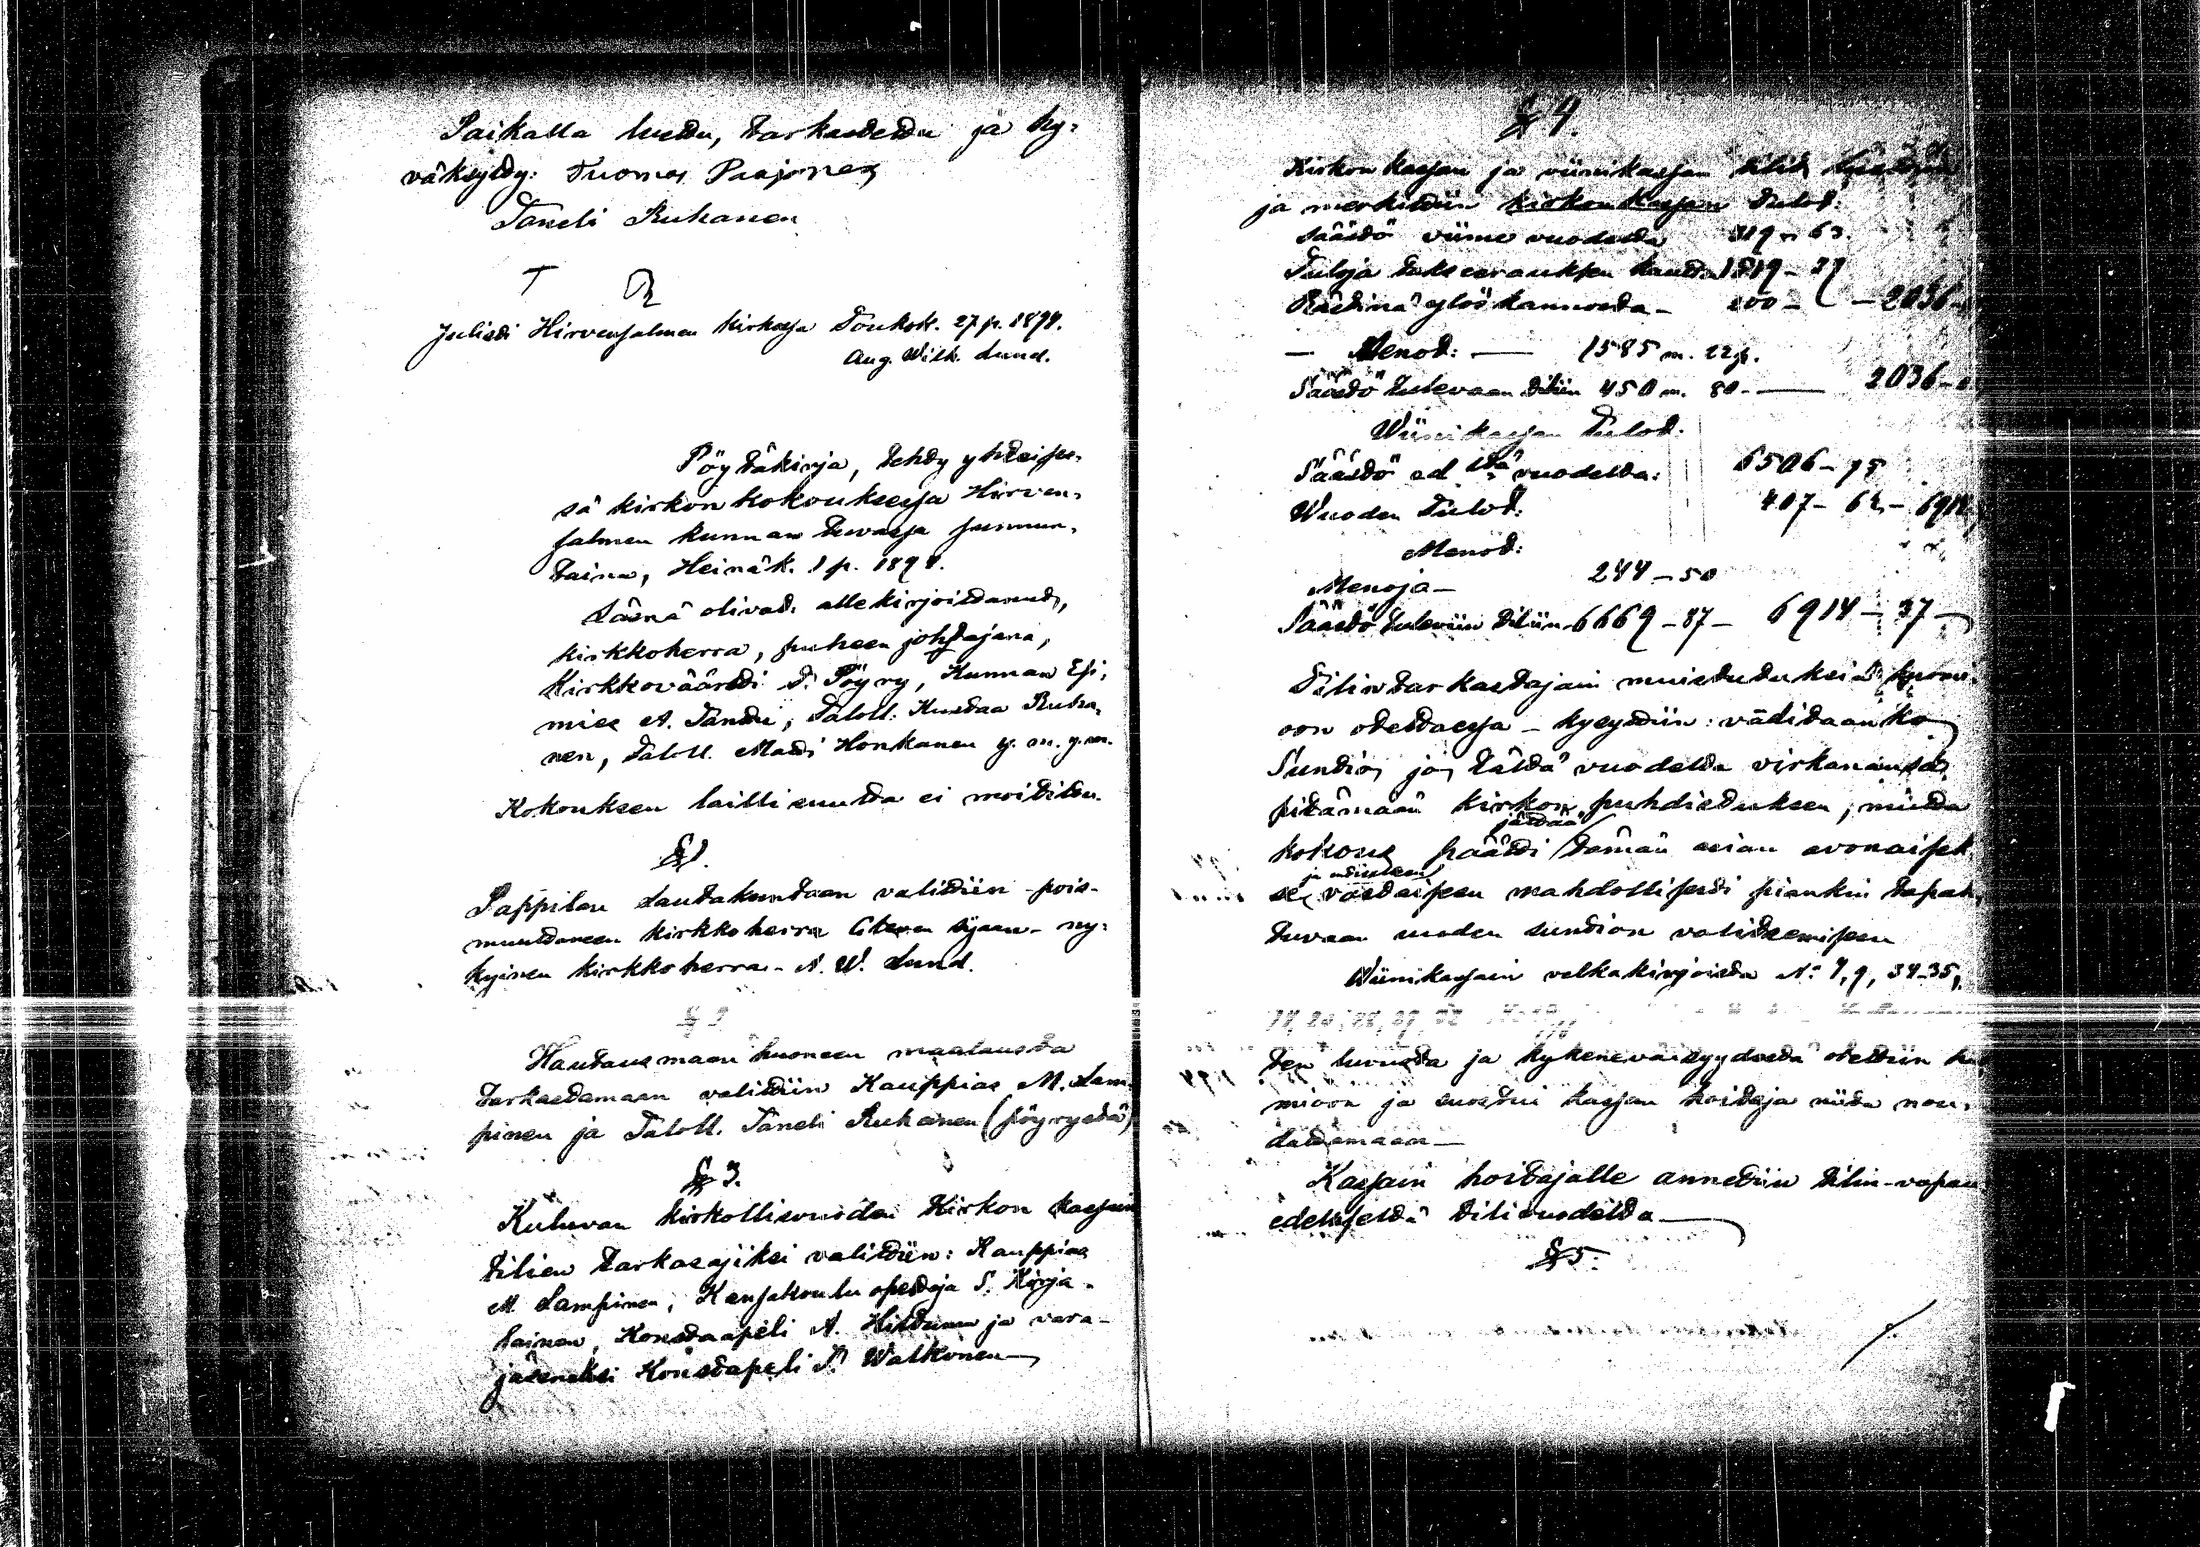 Paikalla luettu, tarkastettu ja hy-
väksytty: Tuomas Paajonen
Taneli Ruhanen
Julisti Hirvensalmen kirkossa Toukok. 27 p. 1894.
Aug. Wilh. Lund.
Pöytäkirja, tehty yhteises-
sä kirkonkokouksessa Hirven-
salmen kunnan tuvassa sunnun-
taina, Heinäk. 1 p. 1894.
Läsnä olivat: allekirjoittanut,
kirkkoherra, puheen johtajana,
Kirkkoväärti T. Pöyry, Kunnan Esi-
mies A. Tanttu, Taloll. Kustaa Ruha-
nen, Taloll. Matti Honkanen y. m. y. m.
Kokouksen laillisuutta ei moitittu.
§ 1.
Pappilan Lautakuntaan valittiin - pois-
muuttaneen kirkkoherra sijaan - ny-
kyinen kirkkoherra - A. W. Lund.
§ 2
Hautausmaan huoneen maalausta
tarkastamaan valittiin Kauppias M. Lam-
pinen ja Taloll. Taneli Ruhanen (pöyrystä)
§ 3.
Kuluvan kirkollisvuoden Kirkon kassain
tilien tarkasajiksi valittiin: Kauppias
M. Lampinen, Kansakoulu opettaja S. Kirja-
lainen, Konstaapeli A. Hiltunen ja vara-
jäseneksi Konstapeli P. Walkonen
§ 4.
Kirkon kassan ja viinikassan tilit
ja merkittiin kirkon kassan tulot:
Säästö viime vuodelta 319 - 63.
Tuloja takseerauksen kautta 1519 - 39
Rästinä ylöskannosta - 200 - - 2036 -
- Menot: - 1585 m. 22 p.
Säästö tulevaan tiliin 450 m. 80 - 2036 -
Wiinikassan Tulot.
Säästö ed ltä vuodelta: 6506 - 75
Wuoden Tulot: 407 - 62 - 6914
Menot:
Menoja - 244 - 50
Säästö tuleviin tiliin 6669 - 87 - 6914 - 37 -
Tilintarkastajain muistutuksia huomi-
oon otettaessa - kysyttiin: vaditaanko
Suntio jo tältä vuodelta virkanansa
pitämään kirkon puhdistuksen, mutta
kokous päätti jättää tämän asian avonaisek-
se ja uudistteen vastaisen mahdollisesti piankin tapah-
tuvaan uuden suntion valitsemiseen
Wiinikassain velkakirjoista No 7, 9, 34-35,
ten luvusta ja kykeneväisyydestä otettiin huo
mioon ja suostui kassan hoitaja niitä nou-
dattamaan -
Kassain hoitajalle annettiin tilin-vapau
edellisestä tilivuodelta
§ 5.